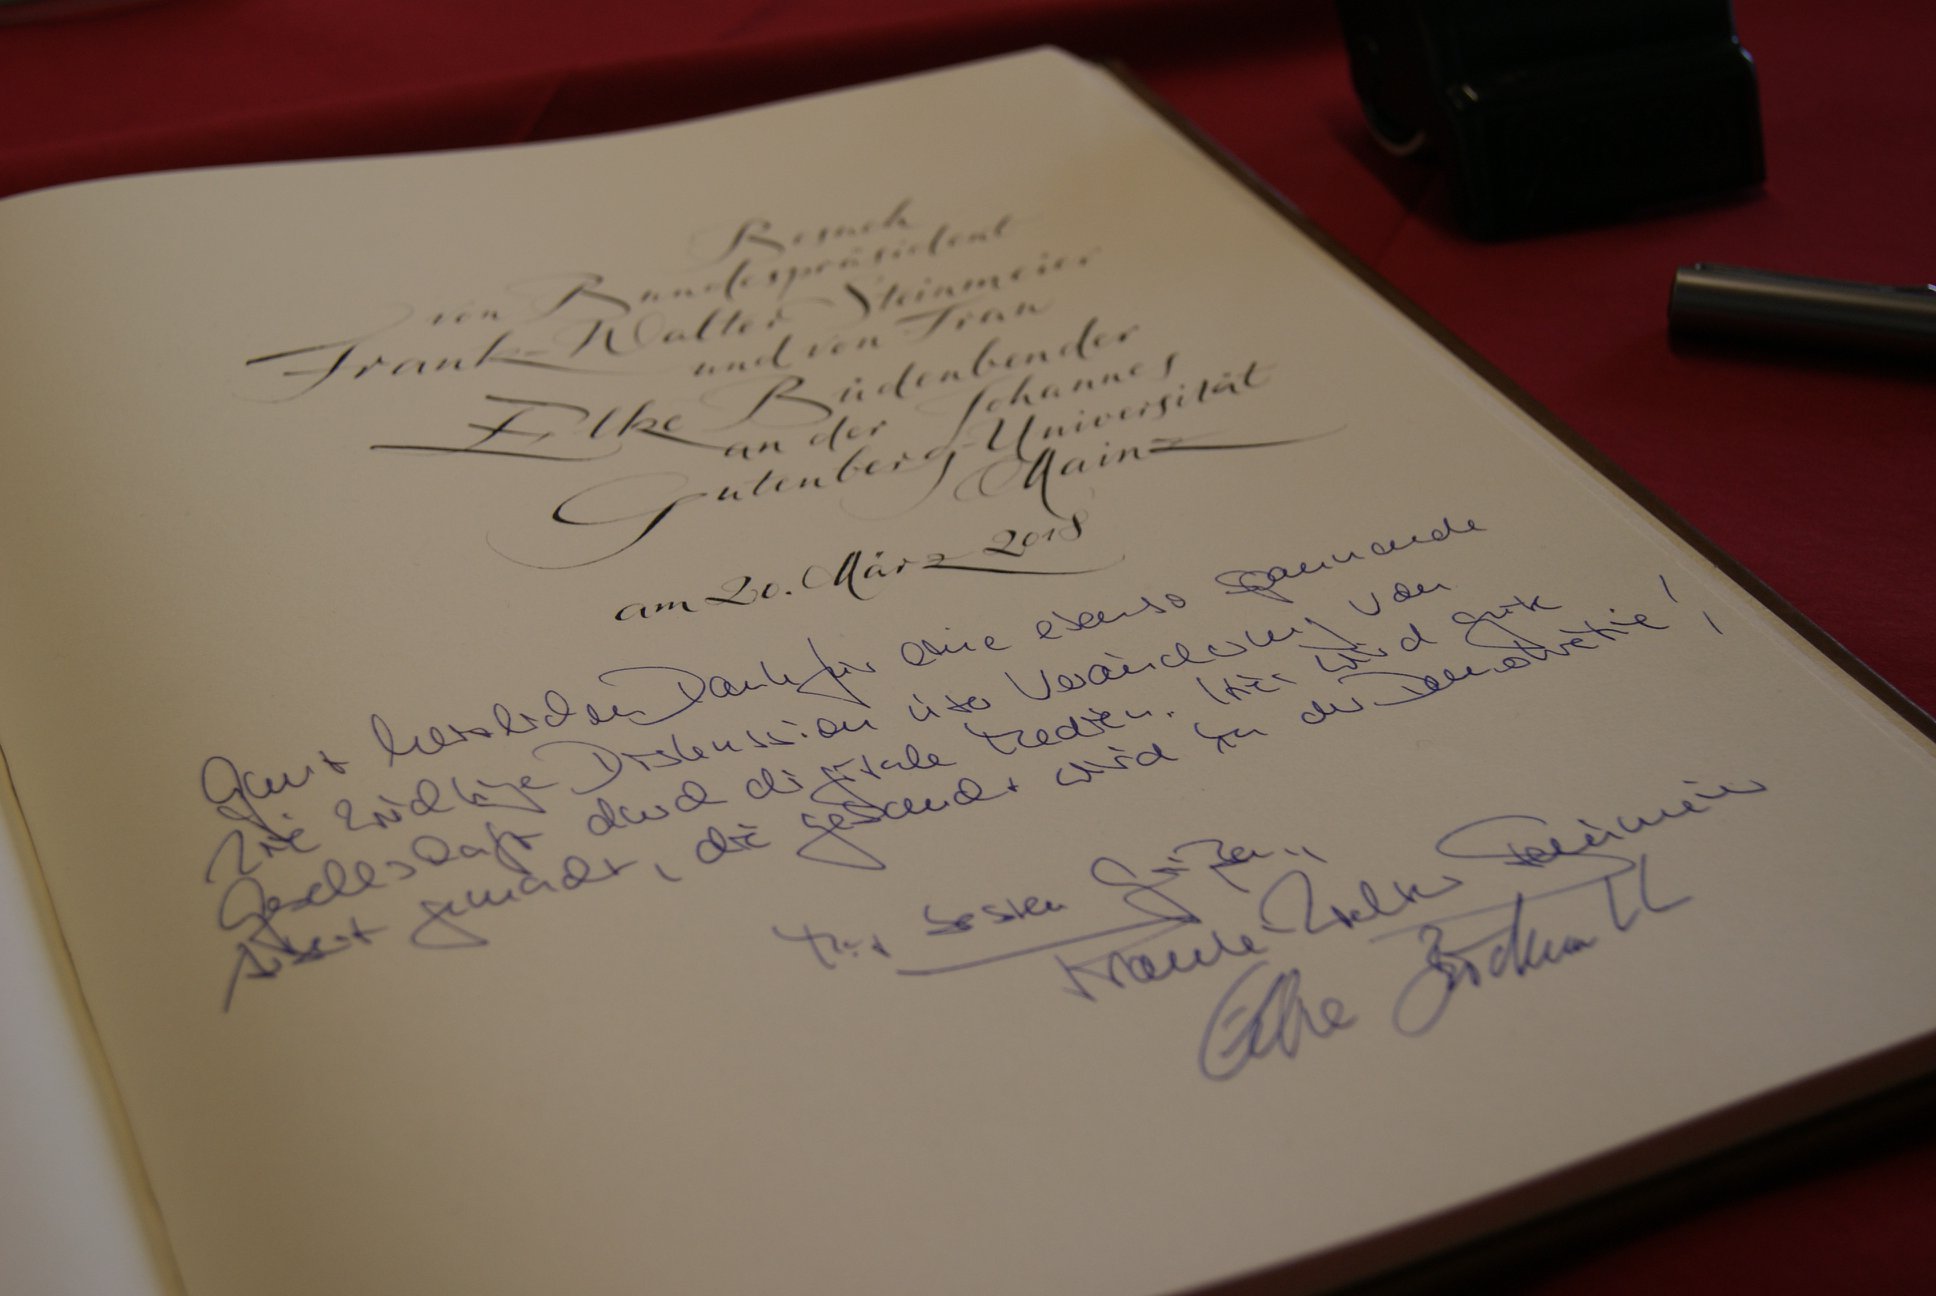 Besuch
von Bundespräsident
Frank-Walter Steinmeier
und von Frau
Elke Büdenbender
an der Johannes
Gutenberg-Universität
Mainz
am 20. März 2018
Ganz herzlichen Dank für eine ebenso spannende
wie wichtige Diskussion über Veränderung von
Gesellschaft durch digitale Medien. Hier wird gute
Arbeit gemacht, die gebraucht wird in der Demokratie!
Mit besten Grüßen,
Frank-Walter Steinmeier
Elke Büdenbender